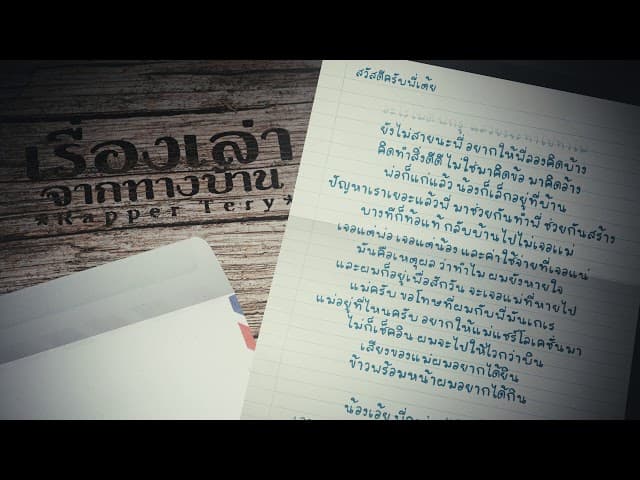 เรื่องเล่า
จากทางบ้าน
*Rapper Tery*
สวัสดีครับพี่เต้ย
ยังไม่สายนะพี่ อยากให้พี่ลองคิดบ้าง
คิดทำสิ่งดีดี ไม่ใช่มาคิดข้อ มาคิดอ้าง
พ่อก็แก่แล้ว น้องก็เล็กอยู่ที่บ้าน
ปัญหาเราเยอะแล้วพี่ มาช่วยกันทำพี่ ช่วยกันสร้าง
บางทีก็ท้อแท้ กลับบ้านไปไม่เจอแม่
เจอแต่พ่อ เจอแต่น้อง และค่าใช้จ่ายที่เจอแน่
มันคือเหตุผล ว่าทำไม ผมยังหายใจ
และผมก็อยู่เพื่อสักวัน จะเจอแม่ที่หายไป
แม่ครับ ขอโทษที่ผมกับพี่มันเกเร
แม่อยู่ที่ไหนครับ อยากให้แม่แชร์โลเคชั่นมา
ไม่ก็เช็คอิน ผมจะไปให้ไวกว่าบิน
เสียงของแม่ผมอยากได้ยิน
ข้าวพร้อมหน้าผมอยากได้กิน
น้องเอ้ย